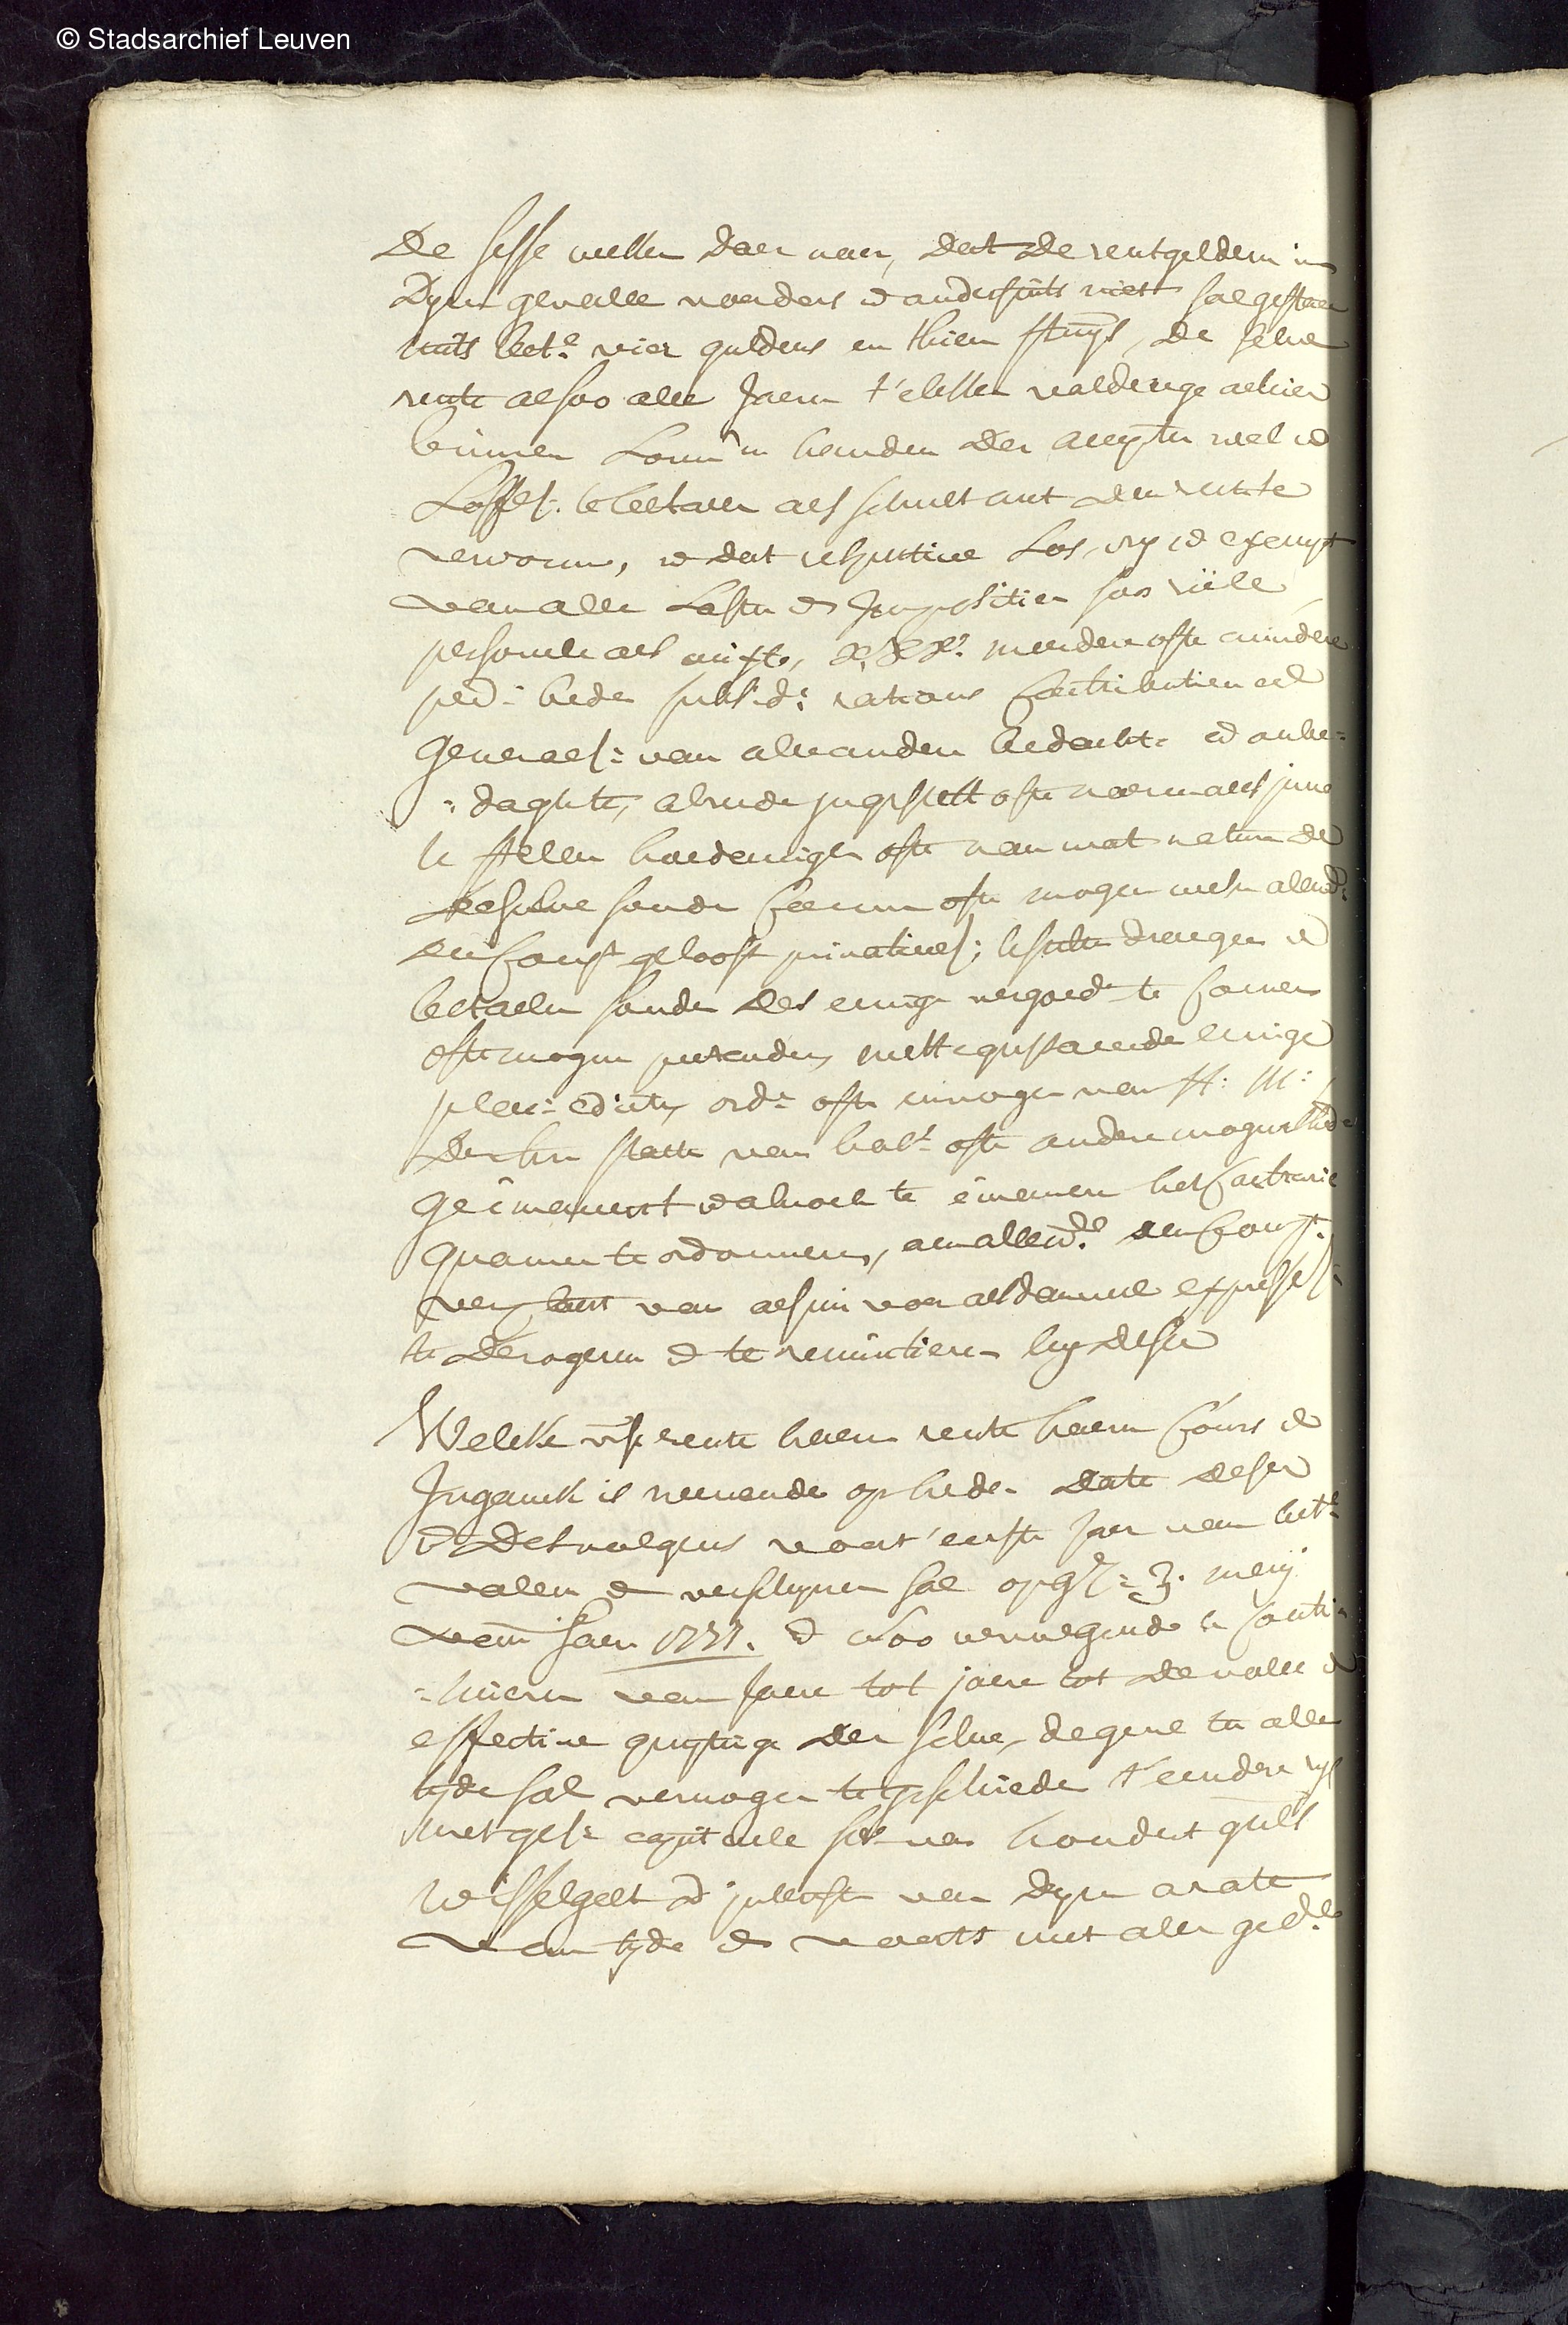 © Stadsarchief Leuven
de sesse weken daer naer, dat de rentgelderen in
dyen gevalle voorders en andersints niet sal gestaen
mits bet.e vier guldens en thien stuyv.s, de selve
rente alsoo alle jaeren t'elcken valdage alhier
binnen Loven in handen der acceptn wel en
loffel: te betaelen als schult met den rechte
verwonnen, en dat respective los, vry en exempt
van alle lasten en impositien soo rëele
personele als mixte, X. XX. meerdere ofte mindere
pen: bede subsid: rations contributien en
generael: van alle andere bedacht en onbe=
=daghte, alreede ingestelt ofte naermaels inne
te stellen hoedanige ofte van wat nature de
deselve soude connen ofte mogen wesen alen
den comp.t gelooft privativel: te sullen draegen en
betaelen sonder des eenige vergoed: te connen
ofte mogen pretenderen niettegenstaende eenige
placc: edicten, ord: ofte innogen van H: M:
de hre staeten van brab.t ofte andere mogentheden
geëmaneert en alnoch te emaneren het contrarie
quamen te ordonneren, aen alle w. den comp.t
verclaert van als nu voor alsdan wel expressel:
te derogeren en te renuntieren by dese
Welcke vs. rente haer rente haeren cours en
inganck is nemende op hede date deser
en desvolgens voor t'eerste jaer van bet.
vallen en verschynen sal op gel: 3. mey
van jaere 1737. en soo vervolgende te conti=
=nueren van jaere tot jaere tot de volle en
effective quytinge der selve, de gene ten allen
tyde sal vermogen te geschieden t'eender reys
met gel: capitaele som van hondert guls
wisselgelt en intrest van dyen a rate
van tyde en voorts met alle ged.